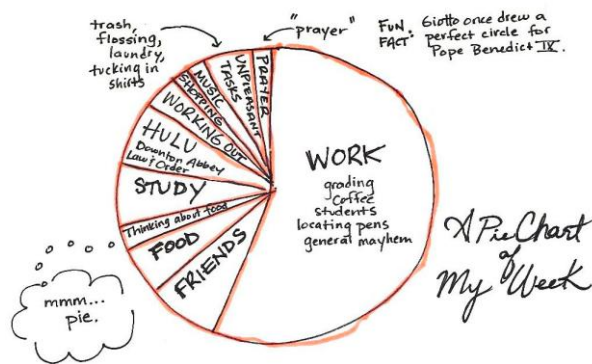 trash,
flossing,
laundry,
tucking in
shirts
"prayer"
FUN FACT: Giotto once drew a
perfect circle for
Pope Benedict IX.
PRAYER
UNPLEASANT
TASKS
MUSIC
SHOPPING
WORKING OUT
HULU
Downton Abbey
Law & Order
STUDY
Thinking about food
FOOD
FRIENDS
WORK
grading
coffee
students
locating pens
general mayhem
A Pie Chart
of
My Week
mmm...
pie.